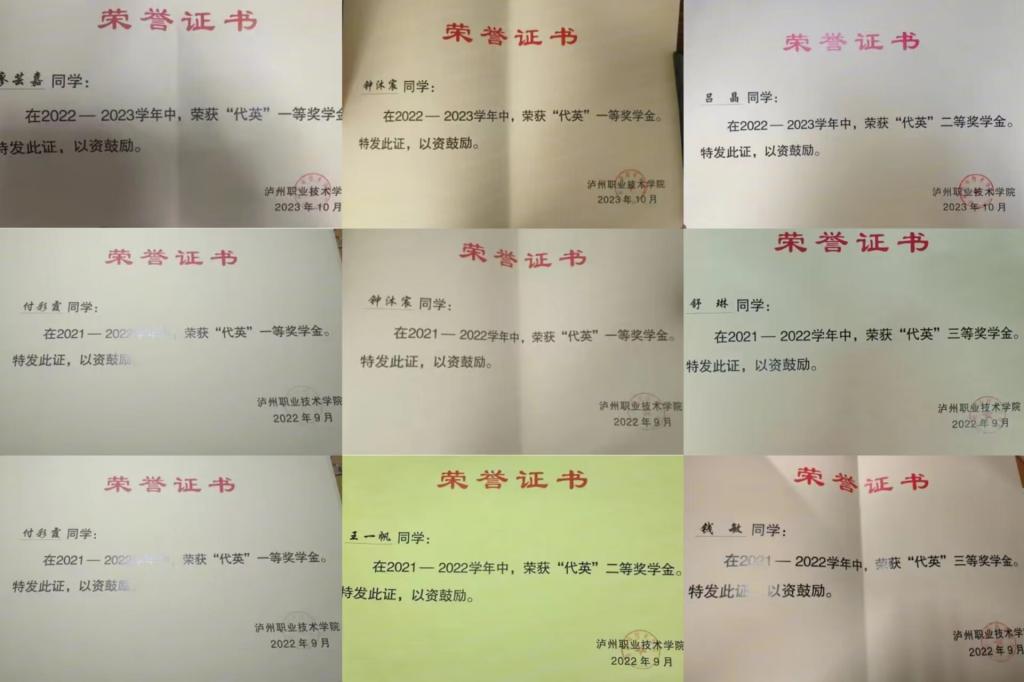 荣誉证书
芸嘉 同学：
在2022—2023学年中，荣获“代英”一等奖学金
特发此证，以资鼓励。
泸州职业技术学
2023年10月
荣誉证书
钟沐宸 同学：
在2022—2023学年中，荣获“代英”一等奖学金。
特发此证，以资鼓励。
泸州职业技术学院
2023年10月
荣誉证书
吕晶 同学：
在2022—2023学年中，荣获“代英”二等奖学金。
特发此证，以资鼓励。
泸州职业技术学院
2023年10月
荣誉证书
付彩霞 同学：
在2021—2022 荣获“代英”一等奖学金。
特发此证，以资鼓励
泸州职业技术学院
2022年9月
荣誉证书
钟沐宸 同学：
在2021—2022学年中，荣获“代英”一等奖学金。
特发此证，以资鼓励。
泸州职业技术学院
2022年9月
荣誉证书
舒琳 同学：
在2021—2022学年中，荣获“代英”三等奖学金。
特发此证，以资鼓励。
泸州职业技术学院
2022年9月
荣誉证书
付彩霞 同学：
在2021—2022 荣获“代英”一等奖学金。
特发此证，以资鼓励
泸州职业技术学院
2022年9月
荣誉证书
王一帆 同学：
在2021—2022学年中，荣获“代英”二等奖学金。
特发此证，以资鼓励。
泸州职业技术学院
2022年9月
荣誉证书
钱敏 同学：
在2021—2022学年中，荣获“代英”三等奖学金。
特发此证，以资鼓励。
泸州职业技术学
2022年9月